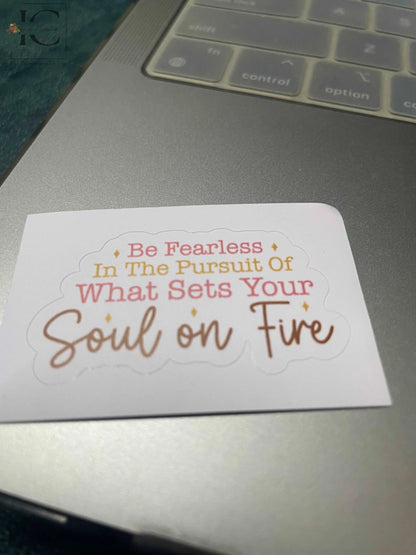 IC
shift
Z
fn
control
option
Be Fearless
In The Pursuit Of
What Sets Your
Soul on Fire